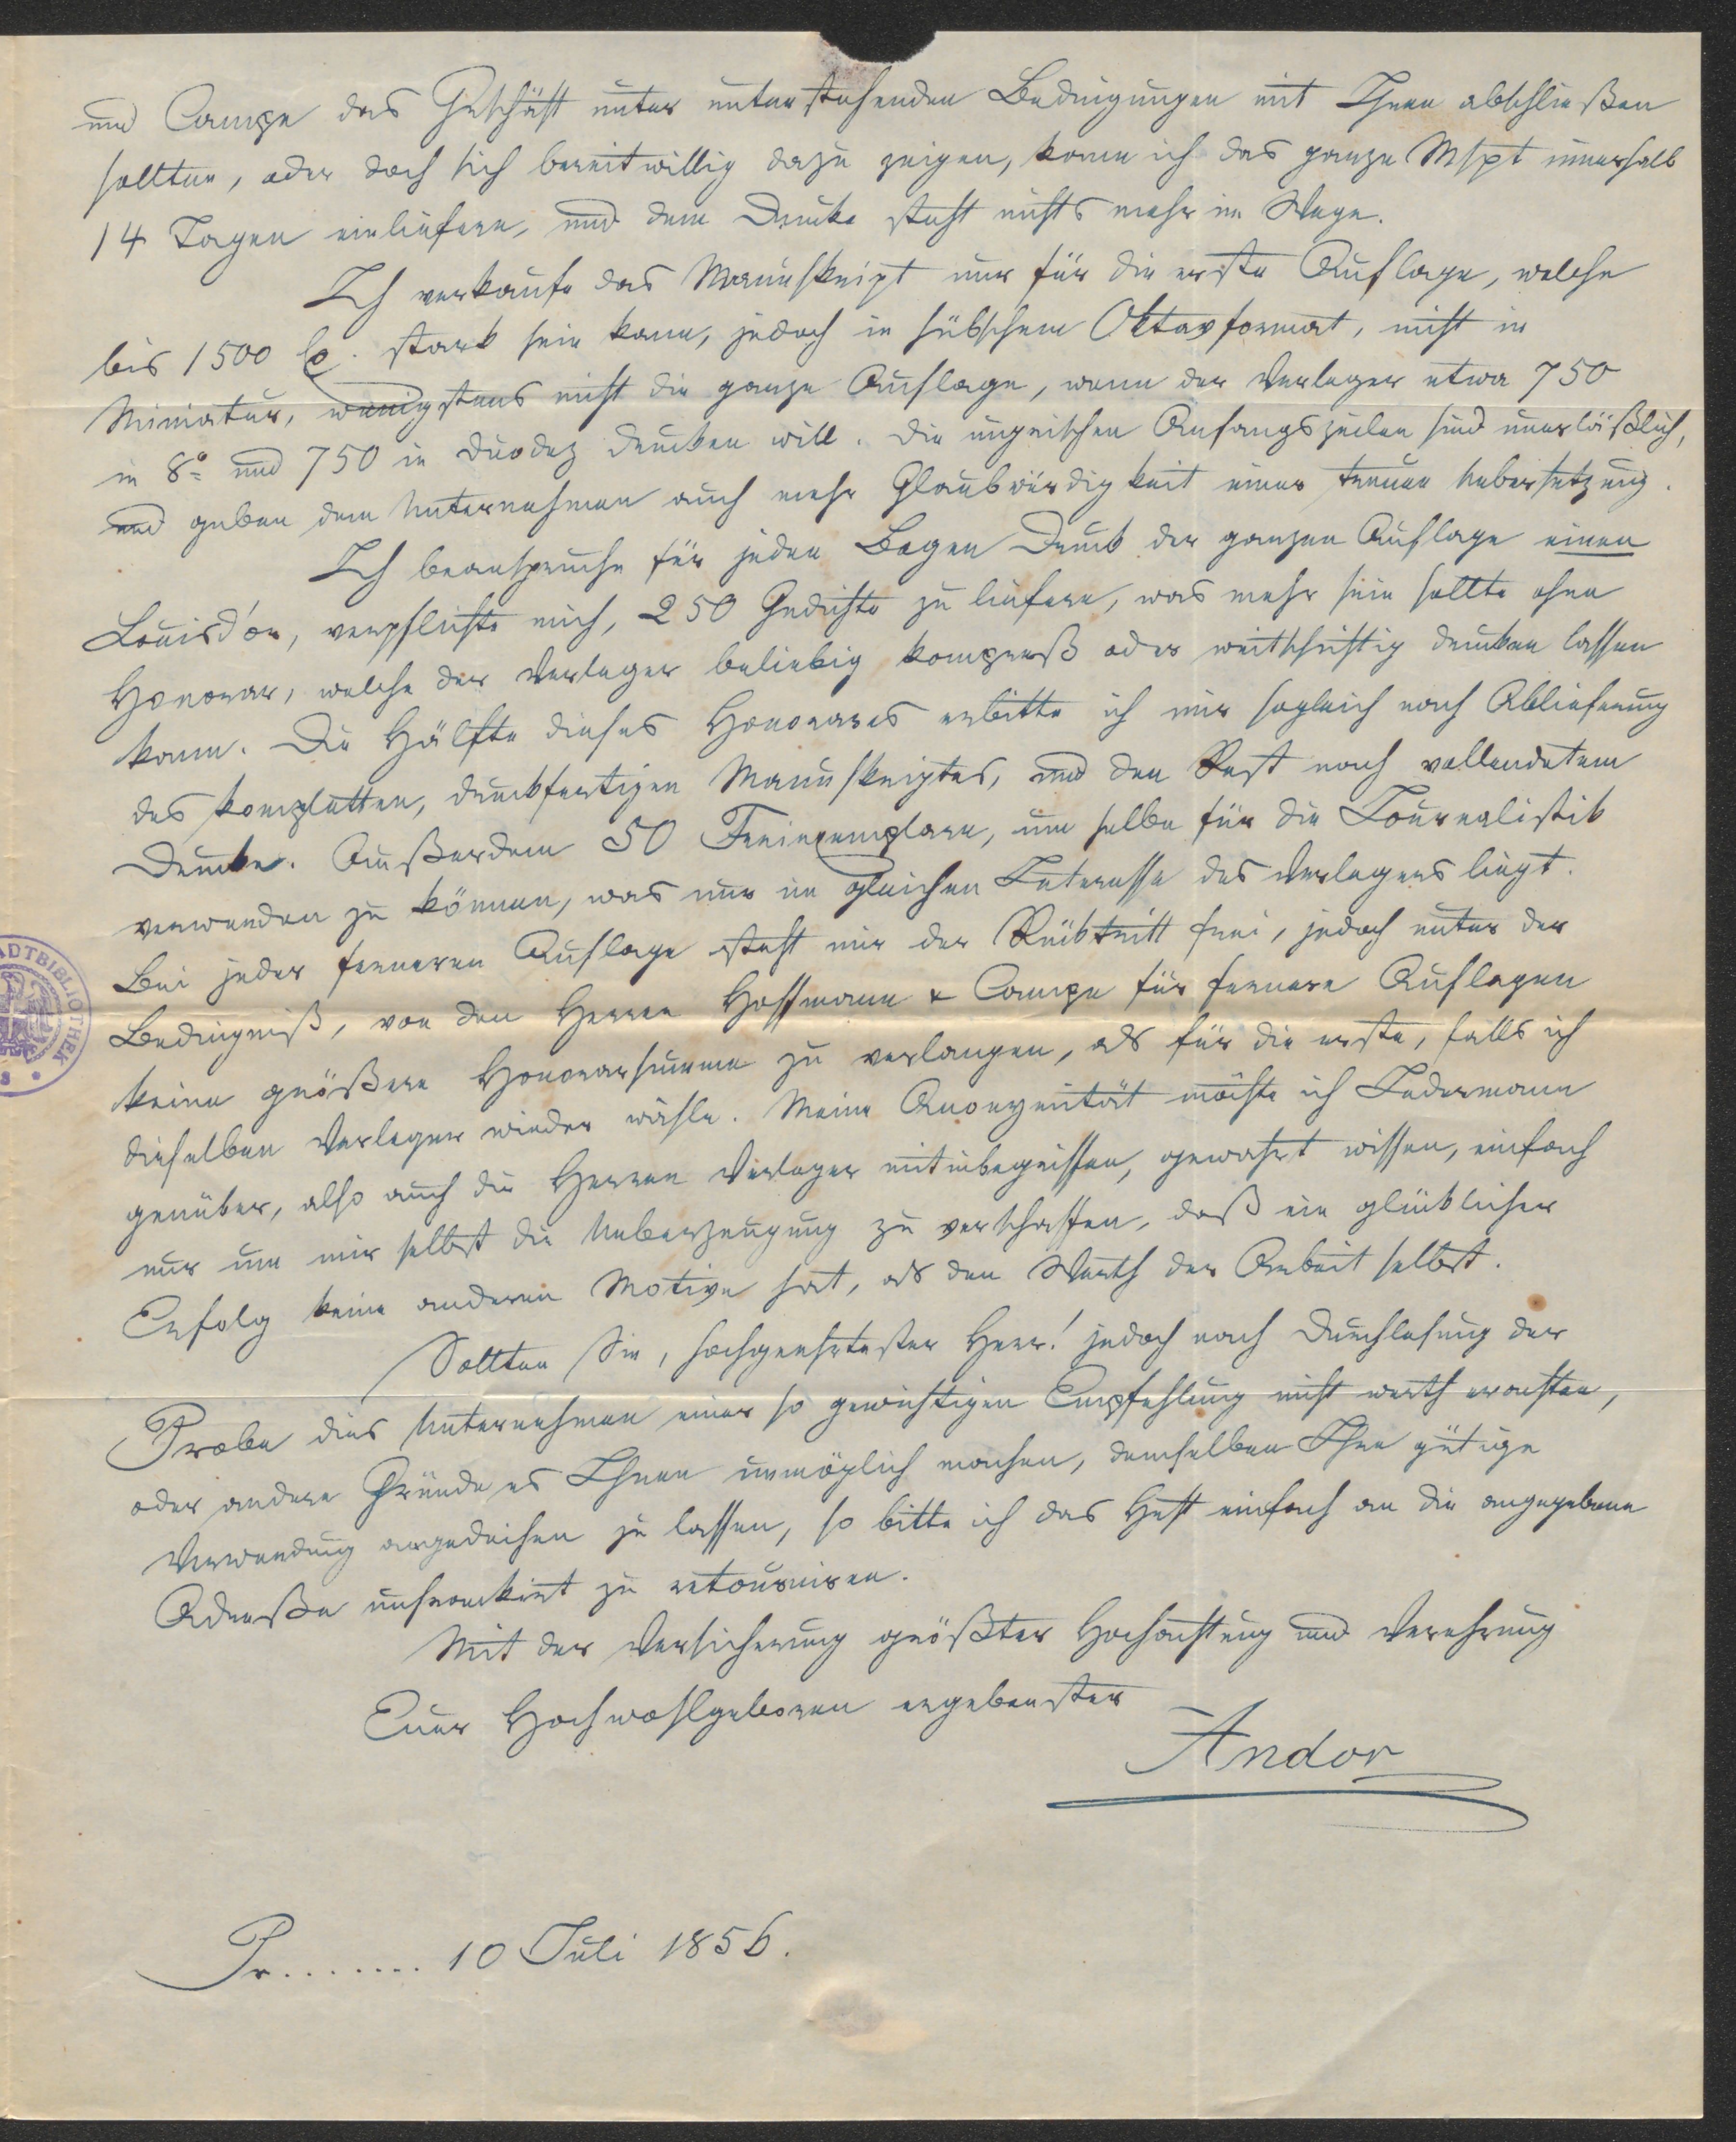 und Campe das Geschäft unter untenstehenden Bedingungen mit Ihnen abschließen
sollten, oder doch sich bereitwillig dazu zeigen, kann ich das ganze Mspt innerhalb
14 Tagen einliefern, und dem Drucke steht nichts mehr im Wege.
Ich verkaufe das Manuskript nur für die erste Auflage, welche
bis 1500 Ex. stark sein kann, jedoch in hübschem Oktavformat, nicht in
Miniatur, wenigstens nicht die ganze Auflage, wenn der Verleger etwa 750
in 8° und 750 in Duodez drucken will. Die ungrischen Anfangszeilen sind unerläßlich,
und geben dem Unternehmen auch mehr Glaubwürdigkeit einer treuen Uebersetzung.
Ich beanspruche für jeden Bogen Druck der ganzen Auflage einen
Louisd'or, verpflichte mich, 250 Gedichte zu liefern, was mehr sein sollte ohne
Honorar, welche der Verleger beliebig kompreß oder weitschichtig drucken lassen
kann. Die Hälfte dieses Honorares erbitte ich mir sogleich nach Ablieferung
des kompletten, druckfertigen Manuskriptes, und den Rest nach vollendetem
Drucke. Außerdem 50 Freiexemplare, um selbe für die Journalistik
verwenden zu können, was nur im gleichen Interesse des Verlegers liegt.
Bei jeder ferneren Auflage steht mir der Rücktritt frei, jedoch unter der
Bedingniß, von den Herren Hoffmann & Campe für fernere Auflagen
keine größere Honorarsumme zu verlangen, als für die erste, falls ich
dieselben Verleger wieder wähle. Meine Anonymität möchte ich Jedermann
genüber, also auch die Herren Verleger mitinbegriffen, gewahrt wissen, einfach
nur um mir selbst die Ueberzeugung zu verschaffen, daß ein glücklicher
Erfolg keine anderen Motive hat, als den Werth der Arbeit selbst.
Sollten Sie, hochgeehrtester Herr! jedoch nach Durchlesung der
Probe dies Unternehmen einer so gewichtigen Empfehlung nicht werth erachten,
oder andere Gründe es Ihnen unmöglich machen, demselben Ihre gütige
Verwendung angedeihen zu lassen, so bitte ich das Heft einfach an die angegebene
Adreße unfrankirt zu retourniren.
Mit der Versicherung größter Hochachtung und Verehrung
Euer Hochwohlgeboren ergebenster
Andor
Pr........ 10 Juli 1856.